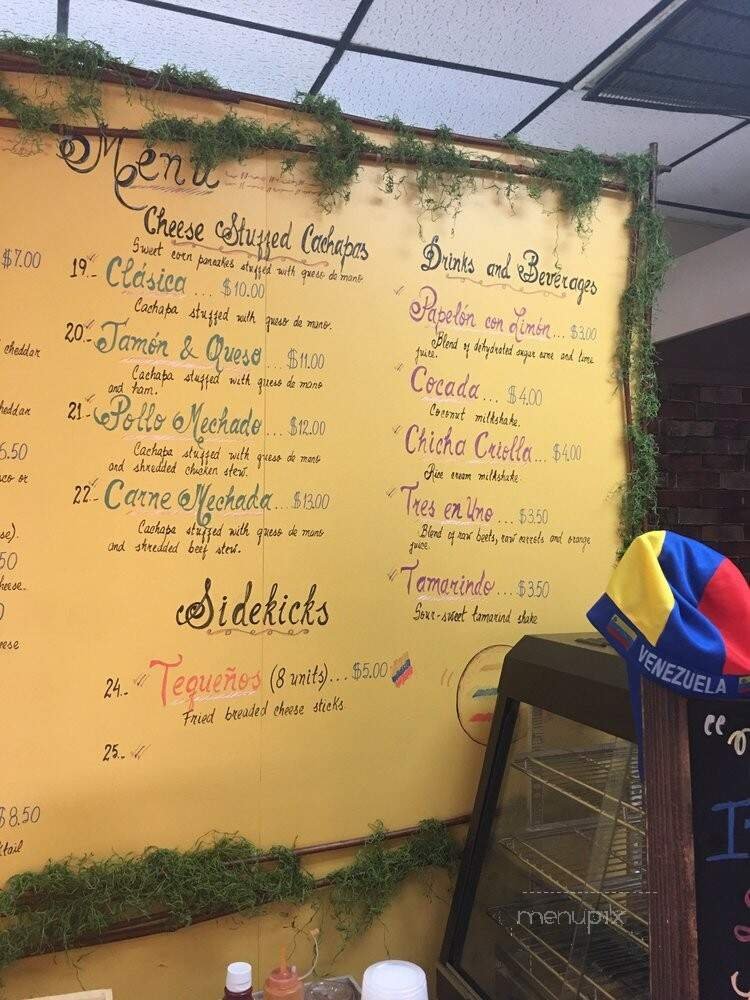 Menu
$7.00
cheddar
heddar
6.50
co or
se).
50
heese.
0
eese
$8.50
ktail
Cheese Stuffed Cachapas
Sweet corn pancakes stuffed with queso de mano
19.- Clásica ... $10.00
Cachapa stuffed with queso de mano.
20.- Jamón & Queso ... $11.00
Cachapa stuffed with queso de mano
and ham.
21.- Pollo Mechado ... $12.00
Cachapa stuffed with queso de mano
and shredded chicken stew.
22.- Carne Mechada ... $13.00
Cachapa stuffed with queso de mano
and shredded beef stew.
Sidekicks
24.- Tequeños (8 units)... $5.00
Fried breaded cheese sticks.
25.-
Drinks and Beverages
Papelón con Limón... $3.00
Blend of dehydrated sugar cane and lime
juice.
Cocada ... $4.00
Coconut milkshake.
Chicha Criolla... $4.00
Rice cream milkshake.
Tres en Uno ... $3.50
Blend of raw beets, raw carrots and orange
juice.
Tamarindo ... $3.50
Sour-sweet tamarind shake
VENEZUELA
menupix